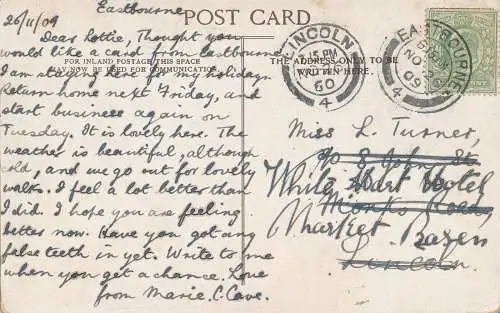 Eastbourne
26/11/09
POST CARD
Dear Lottie, Thought you
would like a card from eastbourne
FOR INLAND POSTAGE THIS SPACE
MAY NOW BE USED FOR COMMUNICATION.
I am staying here for my holidays
Return home next Friday, and
start business again on
Tuesday. It is lovely here. The
weather is beautiful, although
cold, and we go out for lovely
walks. I feel a lot better than
I did. I hope you are feeling
better now. Have you got any
false teeth in yet. Write to me
when you get a chance. Love
from Marie. C. Cave.
THE ADDRESS ONLY TO BE
WRITTEN HERE.
LINCOLN
15 PM
4
EASTBOURNE
NO
09
4
Miss L. Turner,
White Hart Hotel
Monks Road,
Market Rasen
Lincoln.